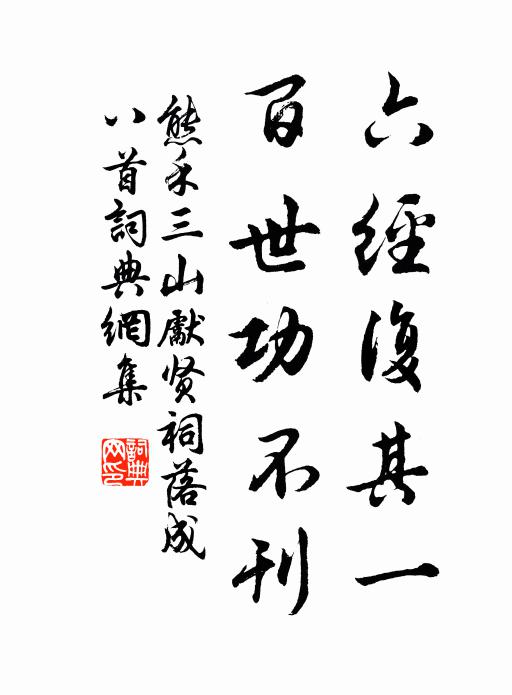 六經復其一
百世功不刊
熊禾三山獻贤祠落成
八首詞典網集
詞典网印